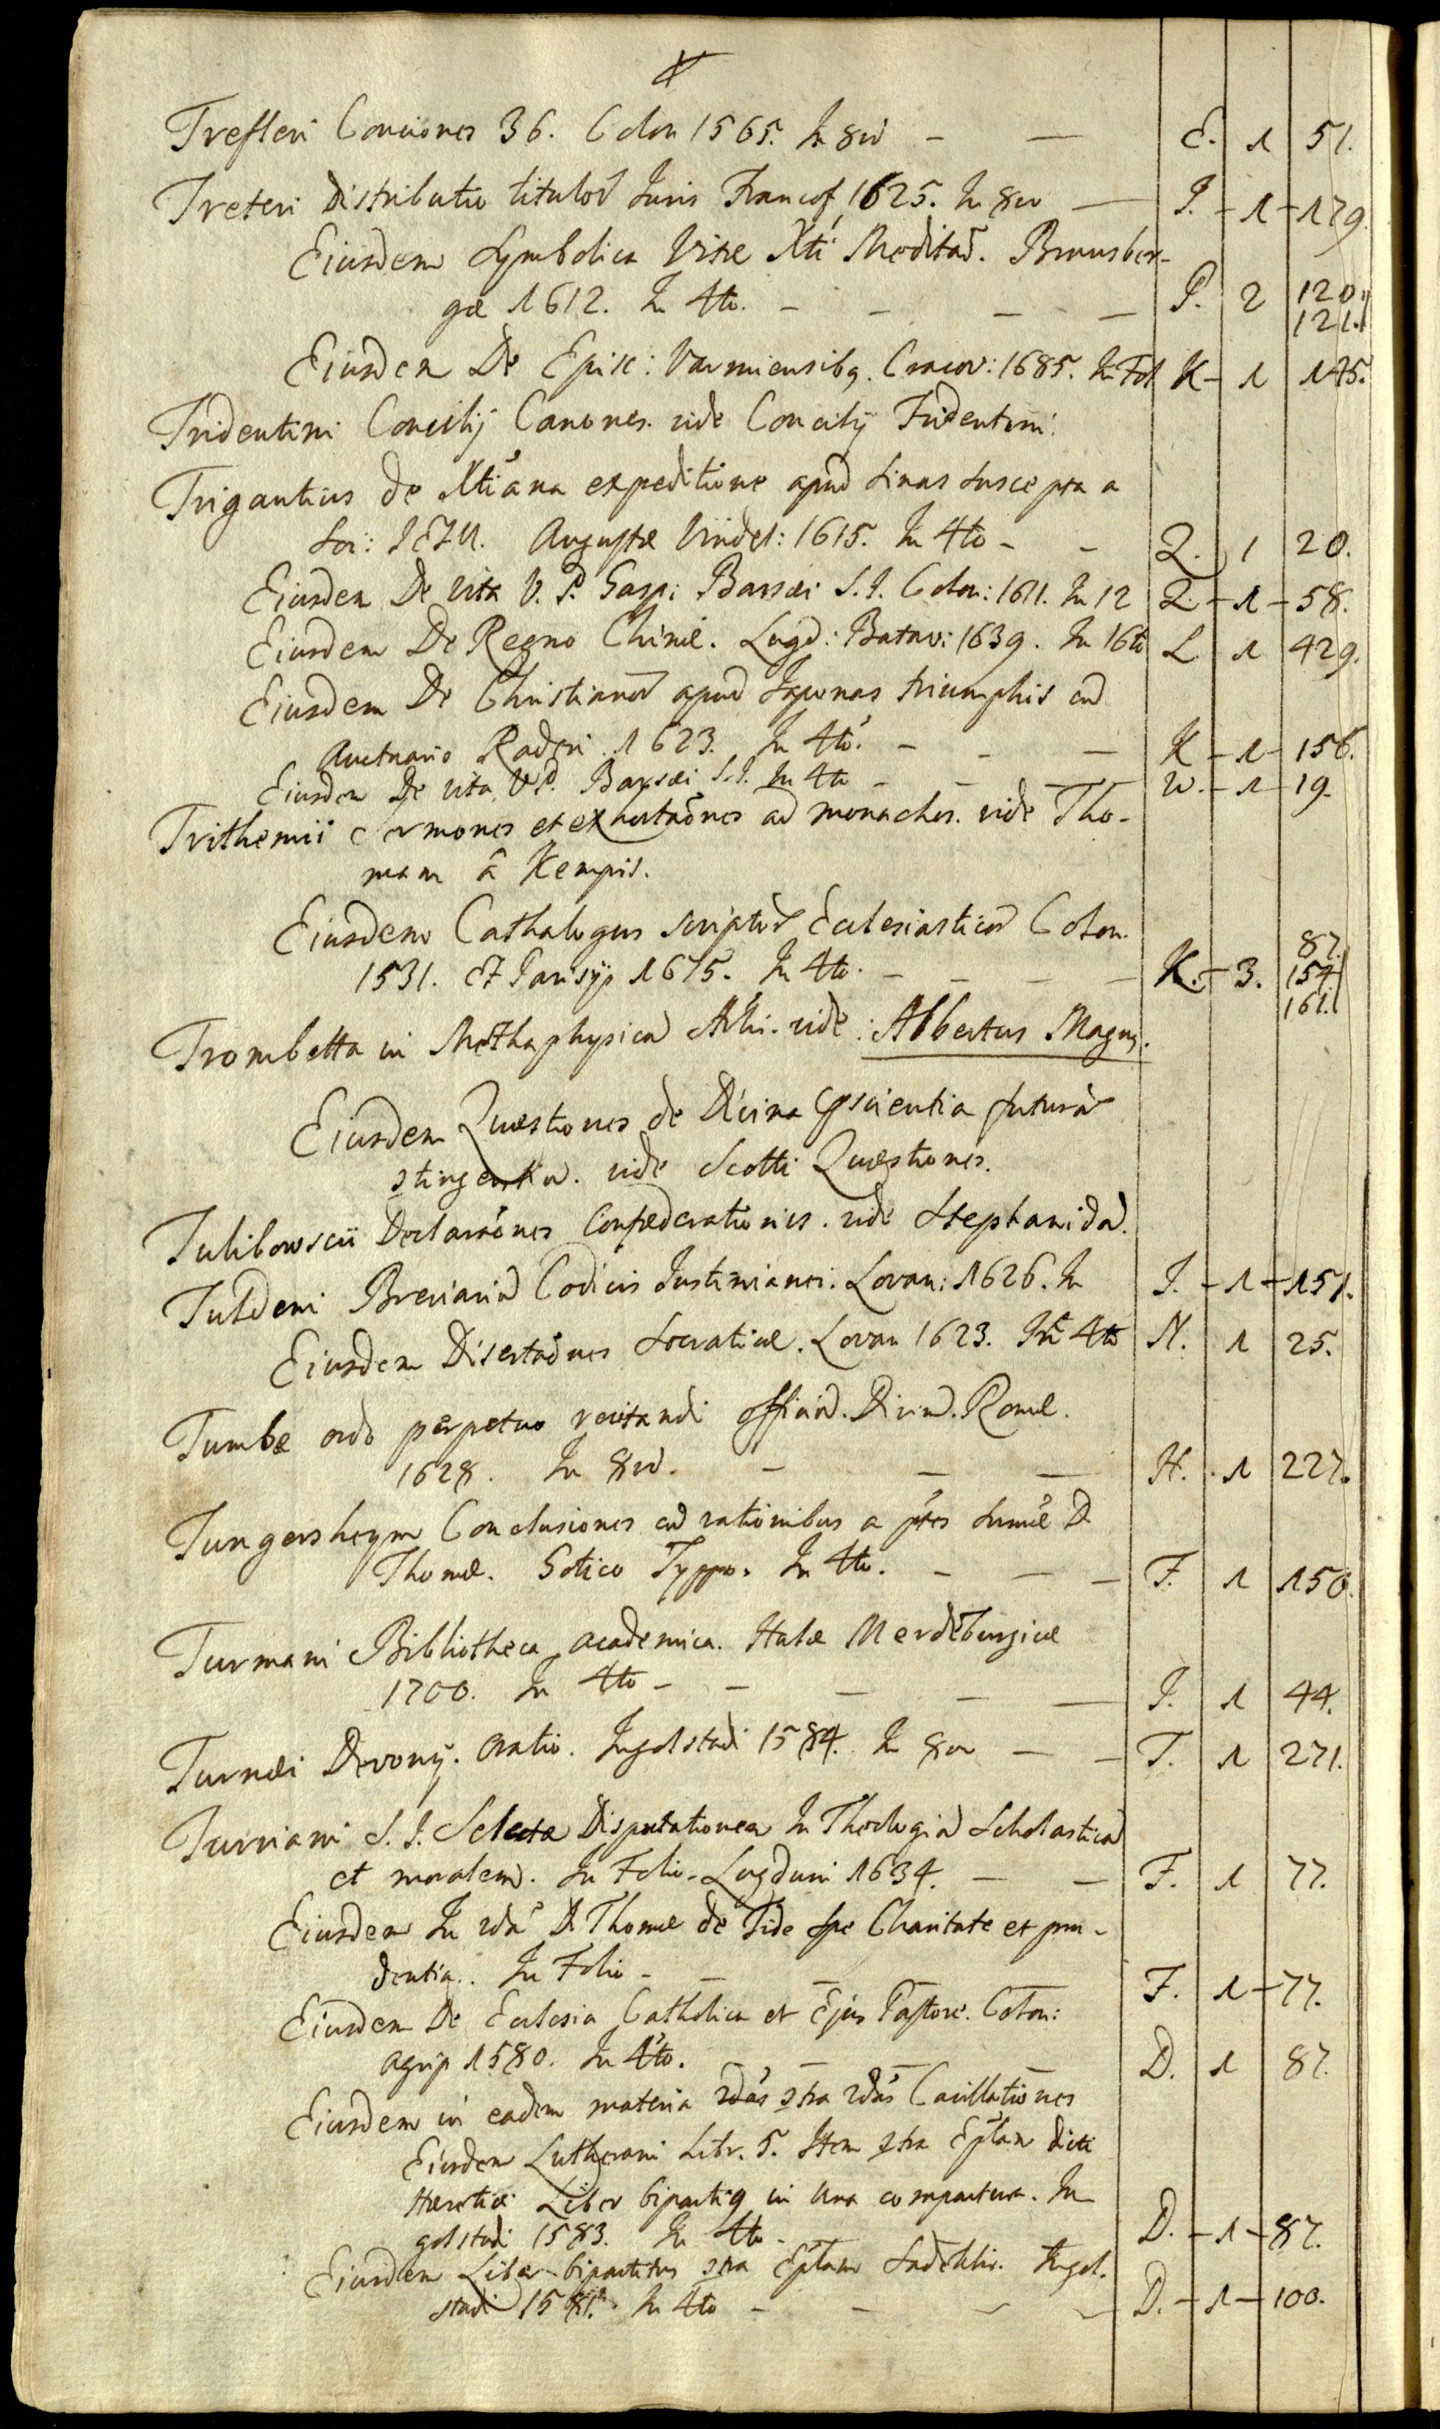 Trefleri Conciones 36. Colon 1565. In 8vo — — E. 1 51.
Treteri Distributio titulor Iuris Francof 1625. In 8vo — I. - 1 - 179.
Eiusdem Symbolica Vitæ Xti Meditao. Brunsber-
gæ 1612. In 4to. - - - — P. 2 120.
121.
Eiusdem De Episc: Varmiensibq. Cracov: 1685. In Fol K - 1 145.
Tridentini Concilij Canones. vide Concilij Tridentini.
Trigantius de Xtiana expeditione apud Sinas suscepta a
Soc: IESU. Augustæ Vindel: 1615. In 4to - - Q. 1 20.
Eiusdem De vita V. P. Gasp: Barzæi S. I. Colon: 1611. In 12 Q. - 1 - 58.
Eiusdem De Regno Chinæ. Lugd: Batav: 1639. In 16to L. 1 429.
Eiusdem De Christianor apud Iaponas triumphis cu
Auctuario Raderi 1623. In 4to. - - — K - 1 - 156.
Eiusdem De vita V. P. Barzæi S. I. In 4to - - — W. - 1 - 19.
Trithemii Sermones et exhortaones ad monachos. vide Tho-
mam â Kempis.
Eiusdem Cathalogus scriptor Ecclesiasticor Colon.
1531. Et Parisijs 1675. In 4to. - - - — K. - 3. 87.
154.
161.
Trombetta in Methaphysica Arhi. vide: Albertus Magnq.
Eiusdem Quæstiones de Divina præscientia futuror
ɔtingentiu. vide Scotti Quæstiones.
Tulibowscii Declaraones Confœderationis. vide Stephanida.
Tuldeni Breviariu Codicis Iustinianei. Lovan: 1626. In I. - 1 - 151.
Eiusdem Disertaones Socraticæ. Lovan 1623. In 4to N. 1 25.
Tumbæ ordo perpetuo recitandi officiu. Divin. Romæ.
1628. In 8vo. - — — H. . 1 227.
Tungersheym Conclusiones cu rationibus a ptes sumæ D.
Thomæ. Gotico Typpo. In 4to. - — — F. 1 150.
Turmani Bibliotheca academica. Halæ Merdeburgicæ
1700. In 4to - - — — — I. 1 44.
Turnæi Devonij. oratio. Ingolstadi 1584. In 8vo — — T. 1 271.
Turriani S. I. Selectæ Disputationes In Theologia Scholastica
et moralem. In Folio. Lugduni 1634. — — F. 1 77.
Eiusdem In 2da D. Thomæ de Fide Spe Charitate et pru-
dentia. In Folio - — — F. 1 - 77.
Eiusdem De Ecclesia Catholica et Ejus Pastore. Colon:
agrip 1580. In 4to. — — — D. 1 87.
Eiusdem in eadem materia 2das ɔtra 2das Cavillationes
Eiusdem Lutherani Libr. 5. Item ɔtra Eplam dicti
Hæretici Liber bipartiq in una compactura. In
golstadi 1583. In 4to - D. - 1 - 87.
Eiusdem Liber bipartitus ɔtra Eplam Sadeelis. Ingol.
stadi 1581. In 4to - - - — D. - 1 - 100.